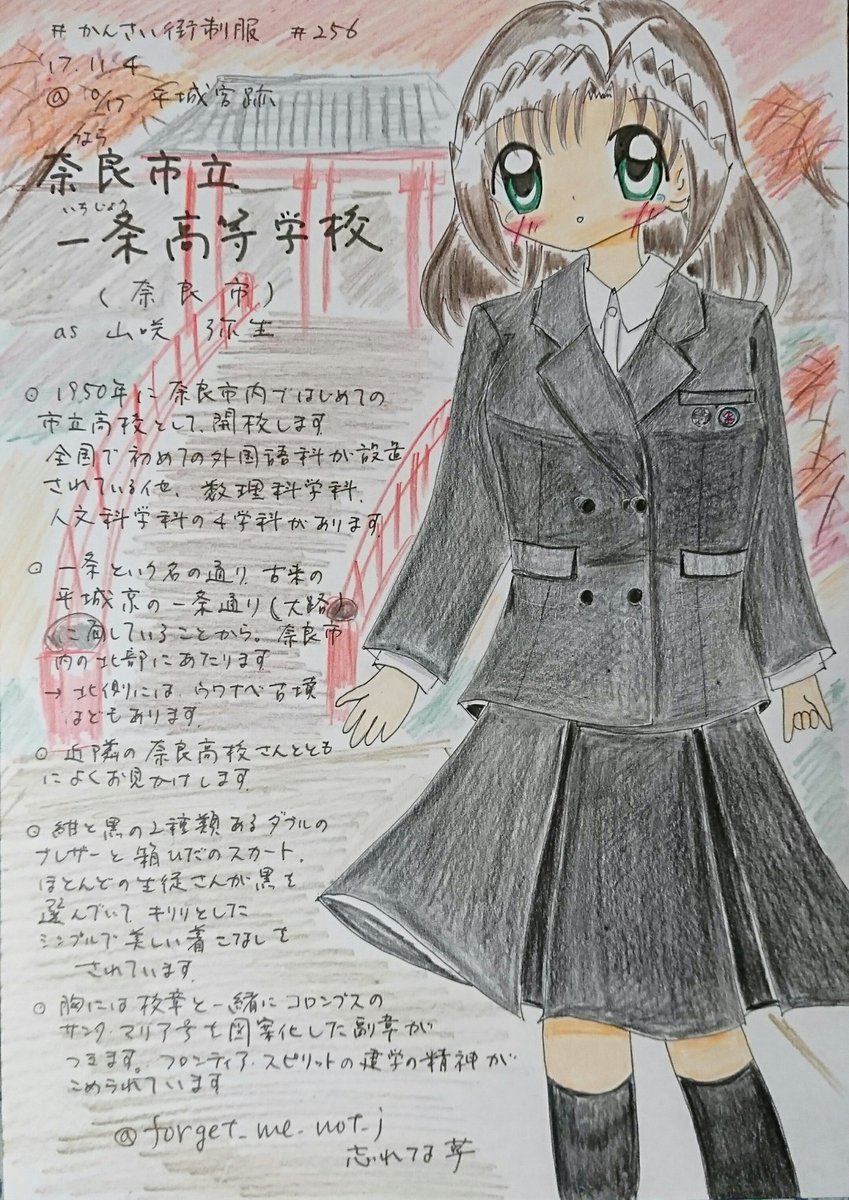 #かんさい街制服 #256
'17.11.4
@10/17 平城宮跡
なら
奈良市立
いちじょう
一条高等学校
(奈良市)
as 山咲 弥生
○ 1950年に奈良市内ではじめての
市立高校として、開校します
全国で初めての外国語科が設置
されている他、数理科学科、
人文科学科の4学科があります
○ 一条という名の通り、古来の
平城京の一条通り(大路)
に面していることから。奈良市
内の北部にあたります
→ 北側には、ウワナベ古墳
などもあります
○ 近隣の奈良高校さんととも
によくお見かけします。
○ 紺と黒の2種類あるダブルの
ブレザーと箱ひだのスカート。
ほとんどの生徒さんが黒を
選んでいて、キリリとした
シンプルで美しい着こなしを
されています
○ 胸には校章と一緒にコロンブスの
サンタ・マリア号を図案化した副章が
つきます。フロンティア・スピリットの建学の精神が
こめられています
@forget_me_not_j
忘れてる草